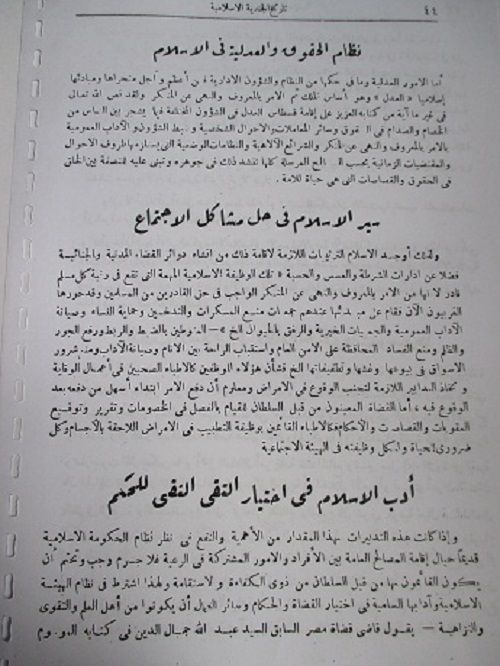 ٤٤
تاريخ الجندية الاسلامية
نظام الحقوق والعدلية فى الاسلام
أما الامور العدلية وما فى حكمها من النظام والشؤون الادارية فمن أعظم وأجل متحراها ومبادئها
إسلاميا « العدل » وهو أساس الملك ثم الامر بالمعروف والنهى عن المنكر ولقد نص الله تعالى
فى غير ما آية من كتابه العزيز على إقامة قسطاس العدل فى الشؤون المختلفة فيما يشجر بين الناس من
الخصام والصدام فى الحقوق وسائر المعاملات والاحوال الشخصية وضبط الشؤون والآداب العمومية
بالامر بالمعروف والنهى عن المنكر والشرائع الالاهية والنظامات الوضعية التى يستلزمها ظروف الاحوال
والمقتضيات الزمانية بحسب المصالح المرسلة كلها تنشد ذلك فى جوهره وتبنى عليه للنصفة بين الخلق
فى الحقوق والقصاصات التى هى حياة للامة .
سير الاسلام فى حل مشاكل الاجتماع
ولذلك أوجد الاسلام الترتيبات اللازمة لاقامة ذلك من افضاء دوائر القضاء المدنية والجنائية
فضلا عن ادارات الشرطة والعسس والحسبة « تلك الوظيفة الاسلامية المهمة التى تقع فى ذمة كل مسلم
قادر لانها من الامر بالمعروف والنهى عن المنكر الواجب فى حق القادرين من المسلمين وقد حورها
الغربيون الآن فقام على مبدئها عندهم جمعيات منع المسكرات والتدخين وحماية النساء وصيانة
الآداب العمومية والجمعيات الخيرية والرفق بالحيوان الخ » — المنوطين بالضبط والربط ورفع الجور
والظلم ومنع الفساد المحافظة على الامن العام واستقباب الراحة بين الانام وصيانة الآداب ومنع شرور
الاسواق فى بيوعها وغشها وتطفيفاتها الخ فشأن هؤلاء الموظفين كالاطباء الصحيين فى أعمال الوقاية
واتخاذ التدابير اللازمة لتجنب الوقوع فى الامراض ومعلوم أن دفع الامر ابتداء أسهل من دفعه بعد
الوقوع فيه ، أما القضاة المعينون من قبل السلطان للقيام بالفصل فى الخصومات وتقرير وتوقيع
العقوبات والقصاصات والأحكام فكالاطباء القائمين بوظيفة التطبيب فى الامراض اللاحقة بالأجسام وكل
ضرورى للحياة ولكل وظيفته فى الهيئة الاجتماعية
أدب الاسلام فى اختيار التقى النقى للحكم
وإذا كانت هذه التدبيرات بهذا المقدار من الأهمية والنفع فى نظر نظام الحكومة الاسلامية
قديماً حيال إقامة المصالح العامة بين الأفراد والامور المشتركة فى الرعية فلا جرم وجب وتحتم أن
يكون القائمون بها من قبل السلطان من ذوى الكفاءة والاستقامة ولهذا اشترط فى نظام الهيئة
الاسلامية وآدابها السامية فى اختيار القضاة والحكام وسائر العمال أن يكونوا من أهل العلم والتقوى
والنزاهة — يقول قاضى قضاة مصر السابق السيد عبد الله جمال الدين فى كتابه